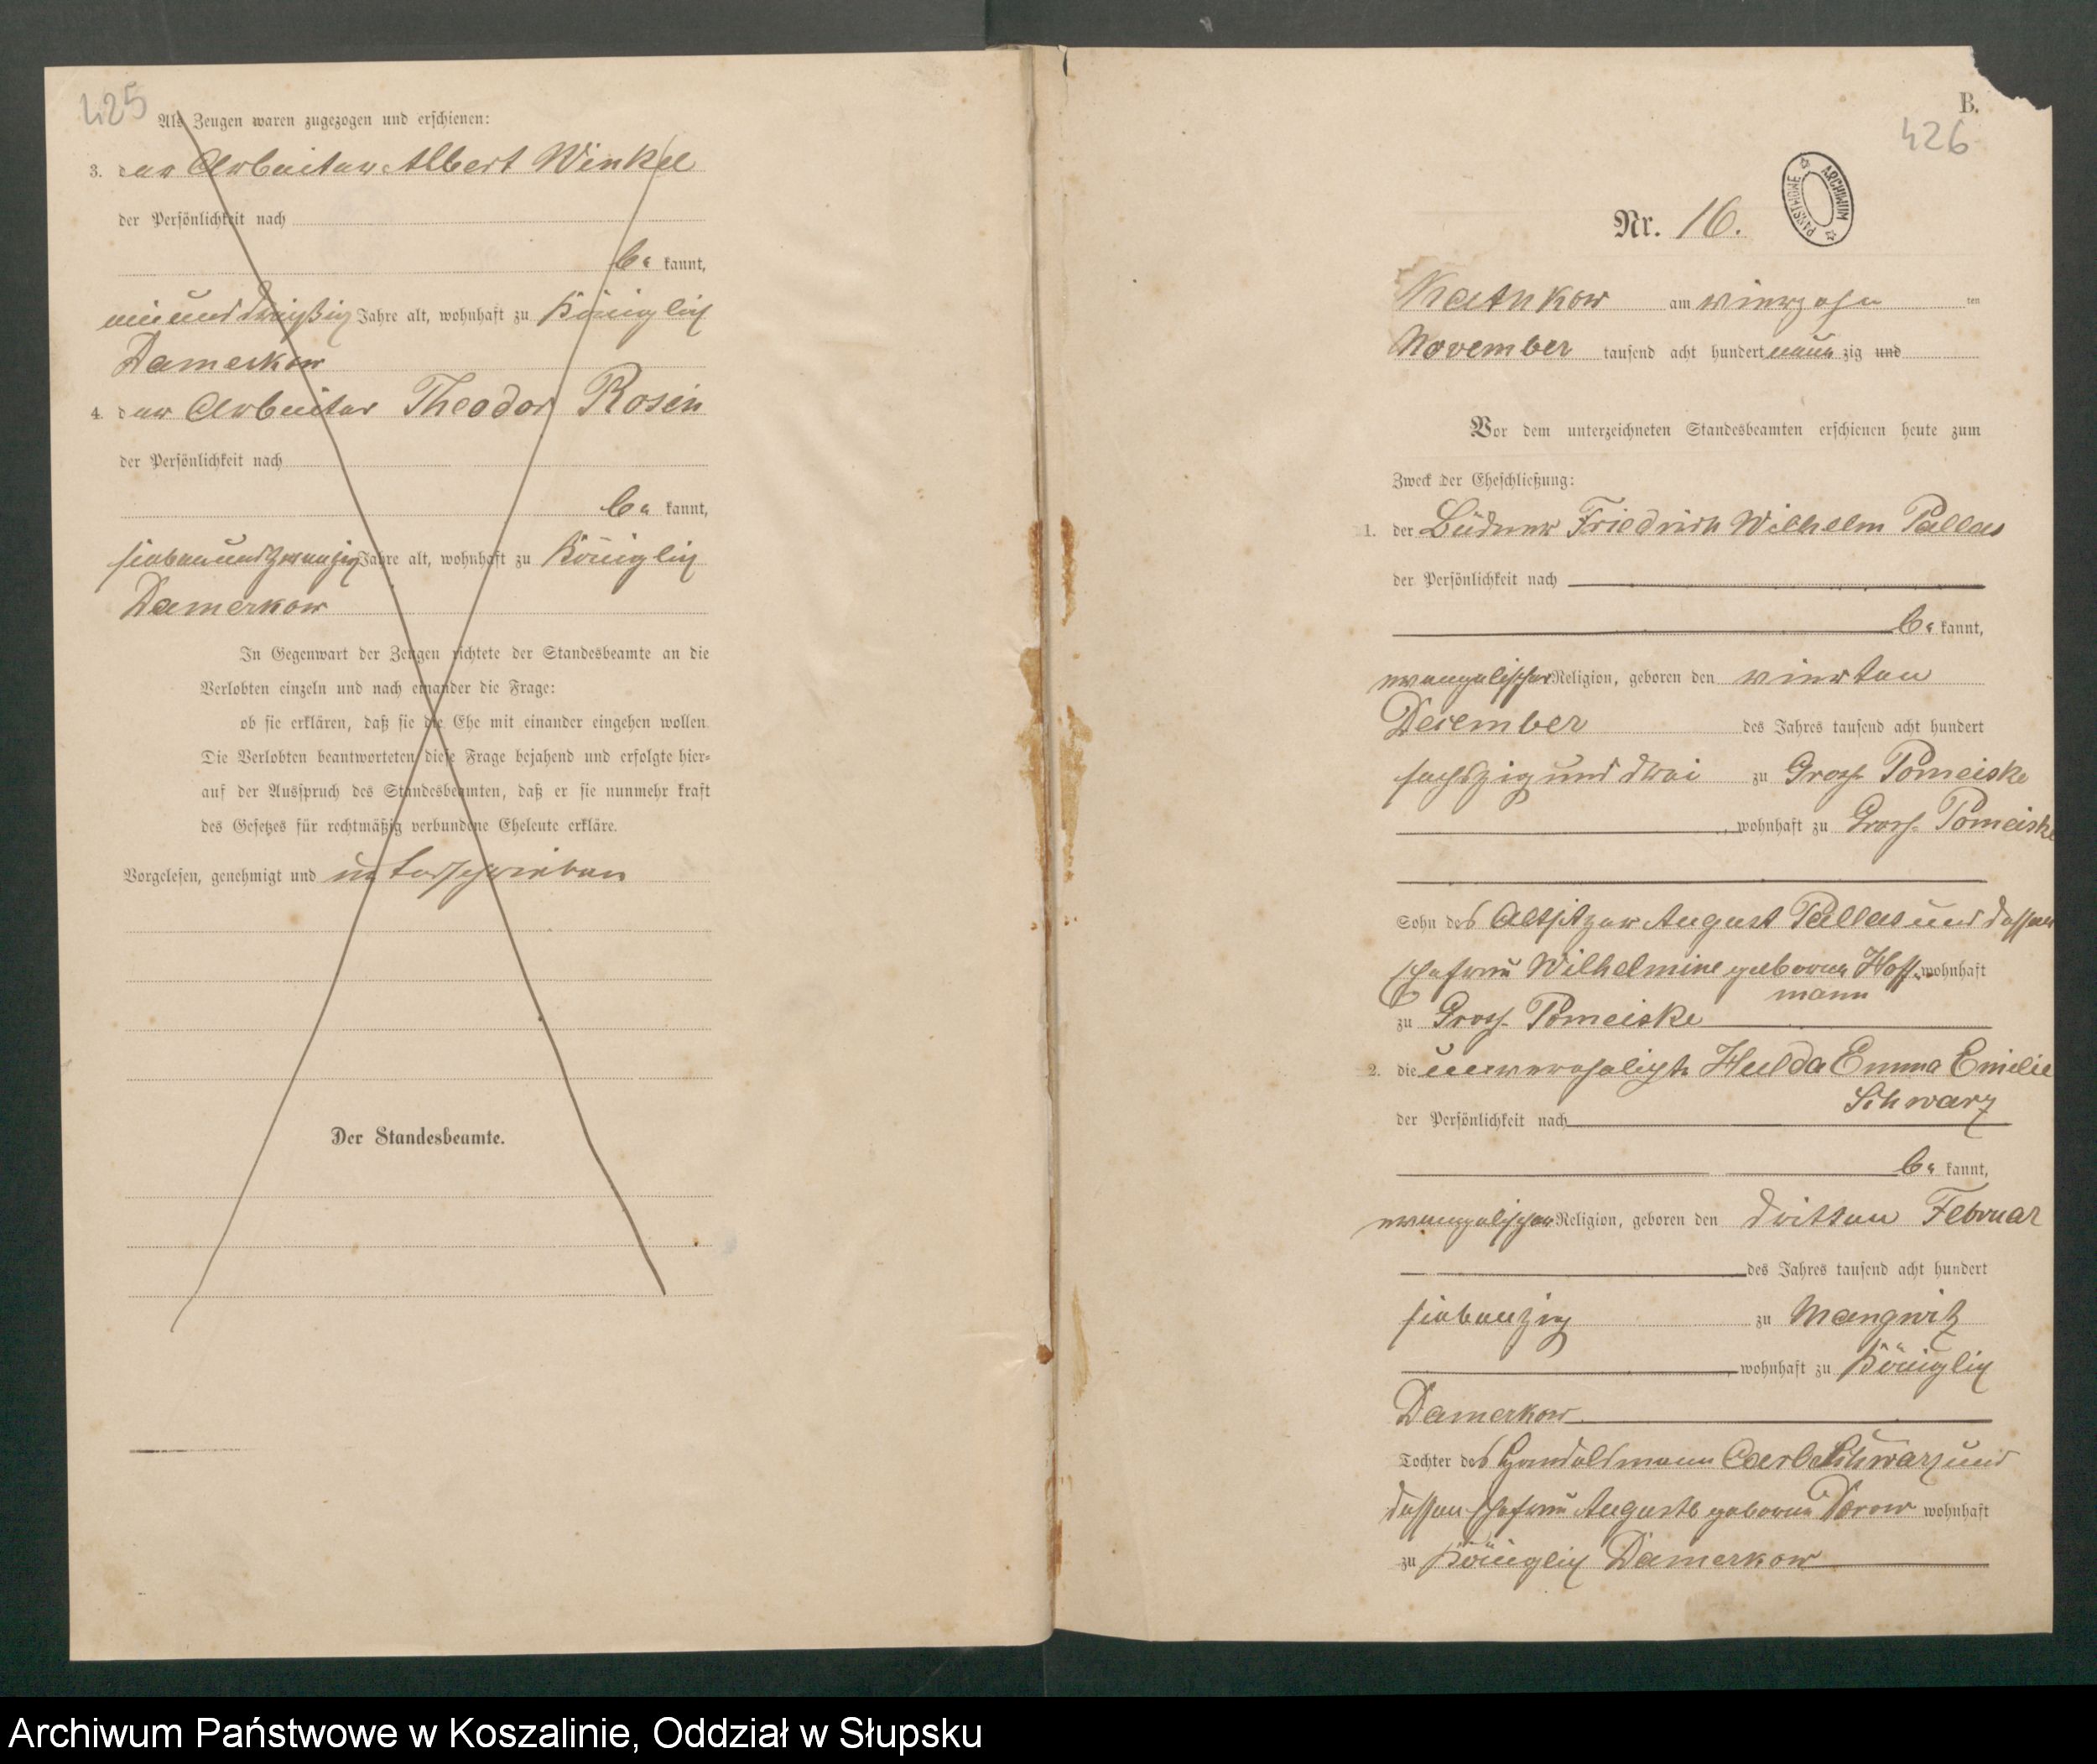 425
Als Zeugen waren zugezogen und erschienen:
3. der Arbeiter Albert Winkel
der Persönlichkeit nach
be kannt,
ein und dreißig Jahre alt, wohnhaft zu Königlich
Damerkow
4. der Arbeiter Theodor Rosin
der Persönlichkeit nach
be kannt,
sieben und zwanzig Jahre alt, wohnhaft zu Königlich
Damerkow
In Gegenwart der Zeugen richtete der Standesbeamte an die
Verlobten einzeln und nach einander die Frage:
ob sie erklären, daß sie die Ehe mit einander eingehen wollen.
Die Verlobten beantworteten diese Frage bejahend und erfolgte hier-
auf der Ausspruch des Standesbeamten, daß er sie nunmehr kraft
des Gesetzes für rechtmäßig verbundene Eheleute erkläre.
Vorgelesen, genehmigt und unterschrieben
Der Standesbeamte.
B.
426
ARCHIWUM PAŃSTWOWE
Nr. 16.
am vierzehn ten
November tausend acht hundert neun zig und
Vor dem unterzeichneten Standesbeamten erschienen heute zum
Zweck der Eheschließung:
1. der Büdner Friedrich Wilhelm Pallas
der Persönlichkeit nach
be kannt,
evangelischer Religion, geboren den vierten
Dezember des Jahres tausend acht hundert
sechszig und drei zu Gross Pomeiske
wohnhaft zu Gross Pomeiske
Sohn des Altsitzer August Pallas und dessen
Ehefrau Wilhelmine geborene Hoff- wohnhaft
mann
zu Gross Pomeiske
2. die unverehelichte Hulda Emma Emilie
Schwarz
der Persönlichkeit nach
be kannt,
evangelischer Religion, geboren den dritten Februar
des Jahres tausend acht hundert
siebenzig zu Mangwitz
wohnhaft zu Königlich
Damerkow
Tochter des Handelsmann Carl Schwarz und
dessen Ehefrau Auguste geborene Dorow wohnhaft
zu Königlich Damerkow
Archiwum Państwowe w Koszalinie, Oddział w Słupsku